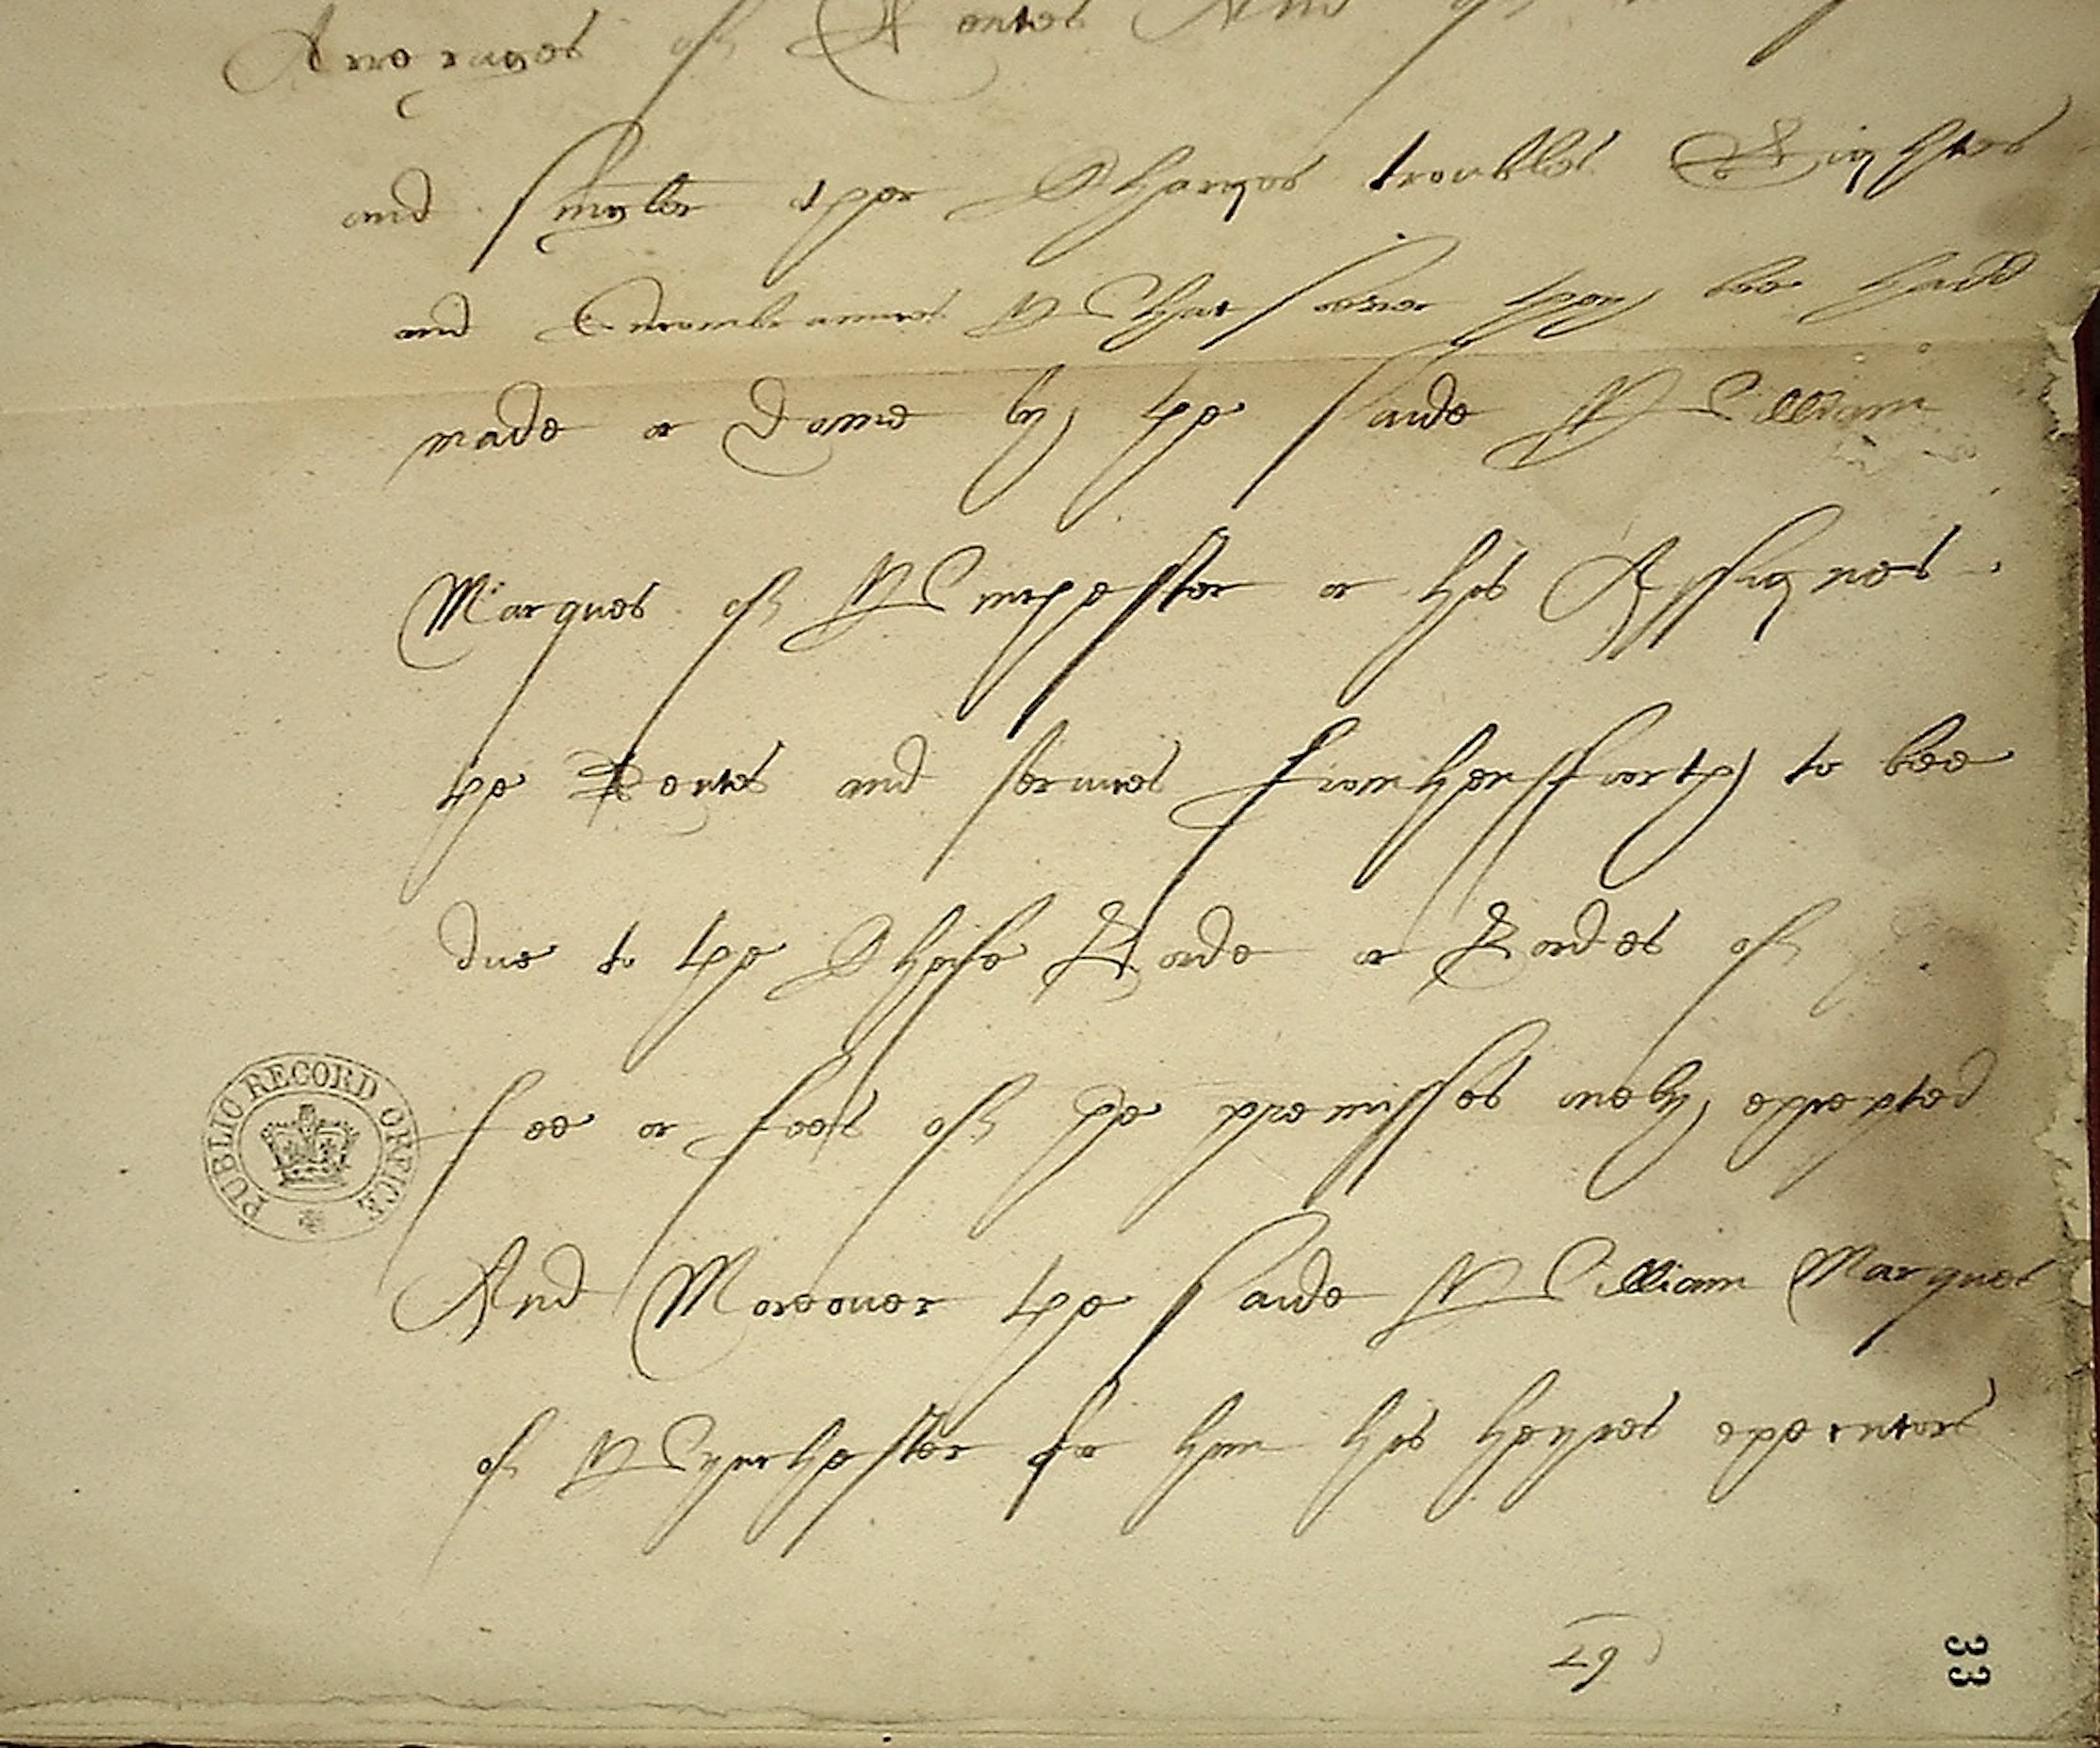 Arrerages of Rentes And
and singler other Charges troubles Tightes
and Encombrannces Whatsoever they bee hadd
made or donne by the saide William
Marques of Winchester or his Assignes
the Rentes and seruices fromhensfoorth to bee
due to the Cheife Lorde or Lordes of
fee or fees of the premisses onely excepted
And Moreouer the saide William Marques
of Wynchester for him his heyres executors
PUBLIC RECORD OFFICE
29
33